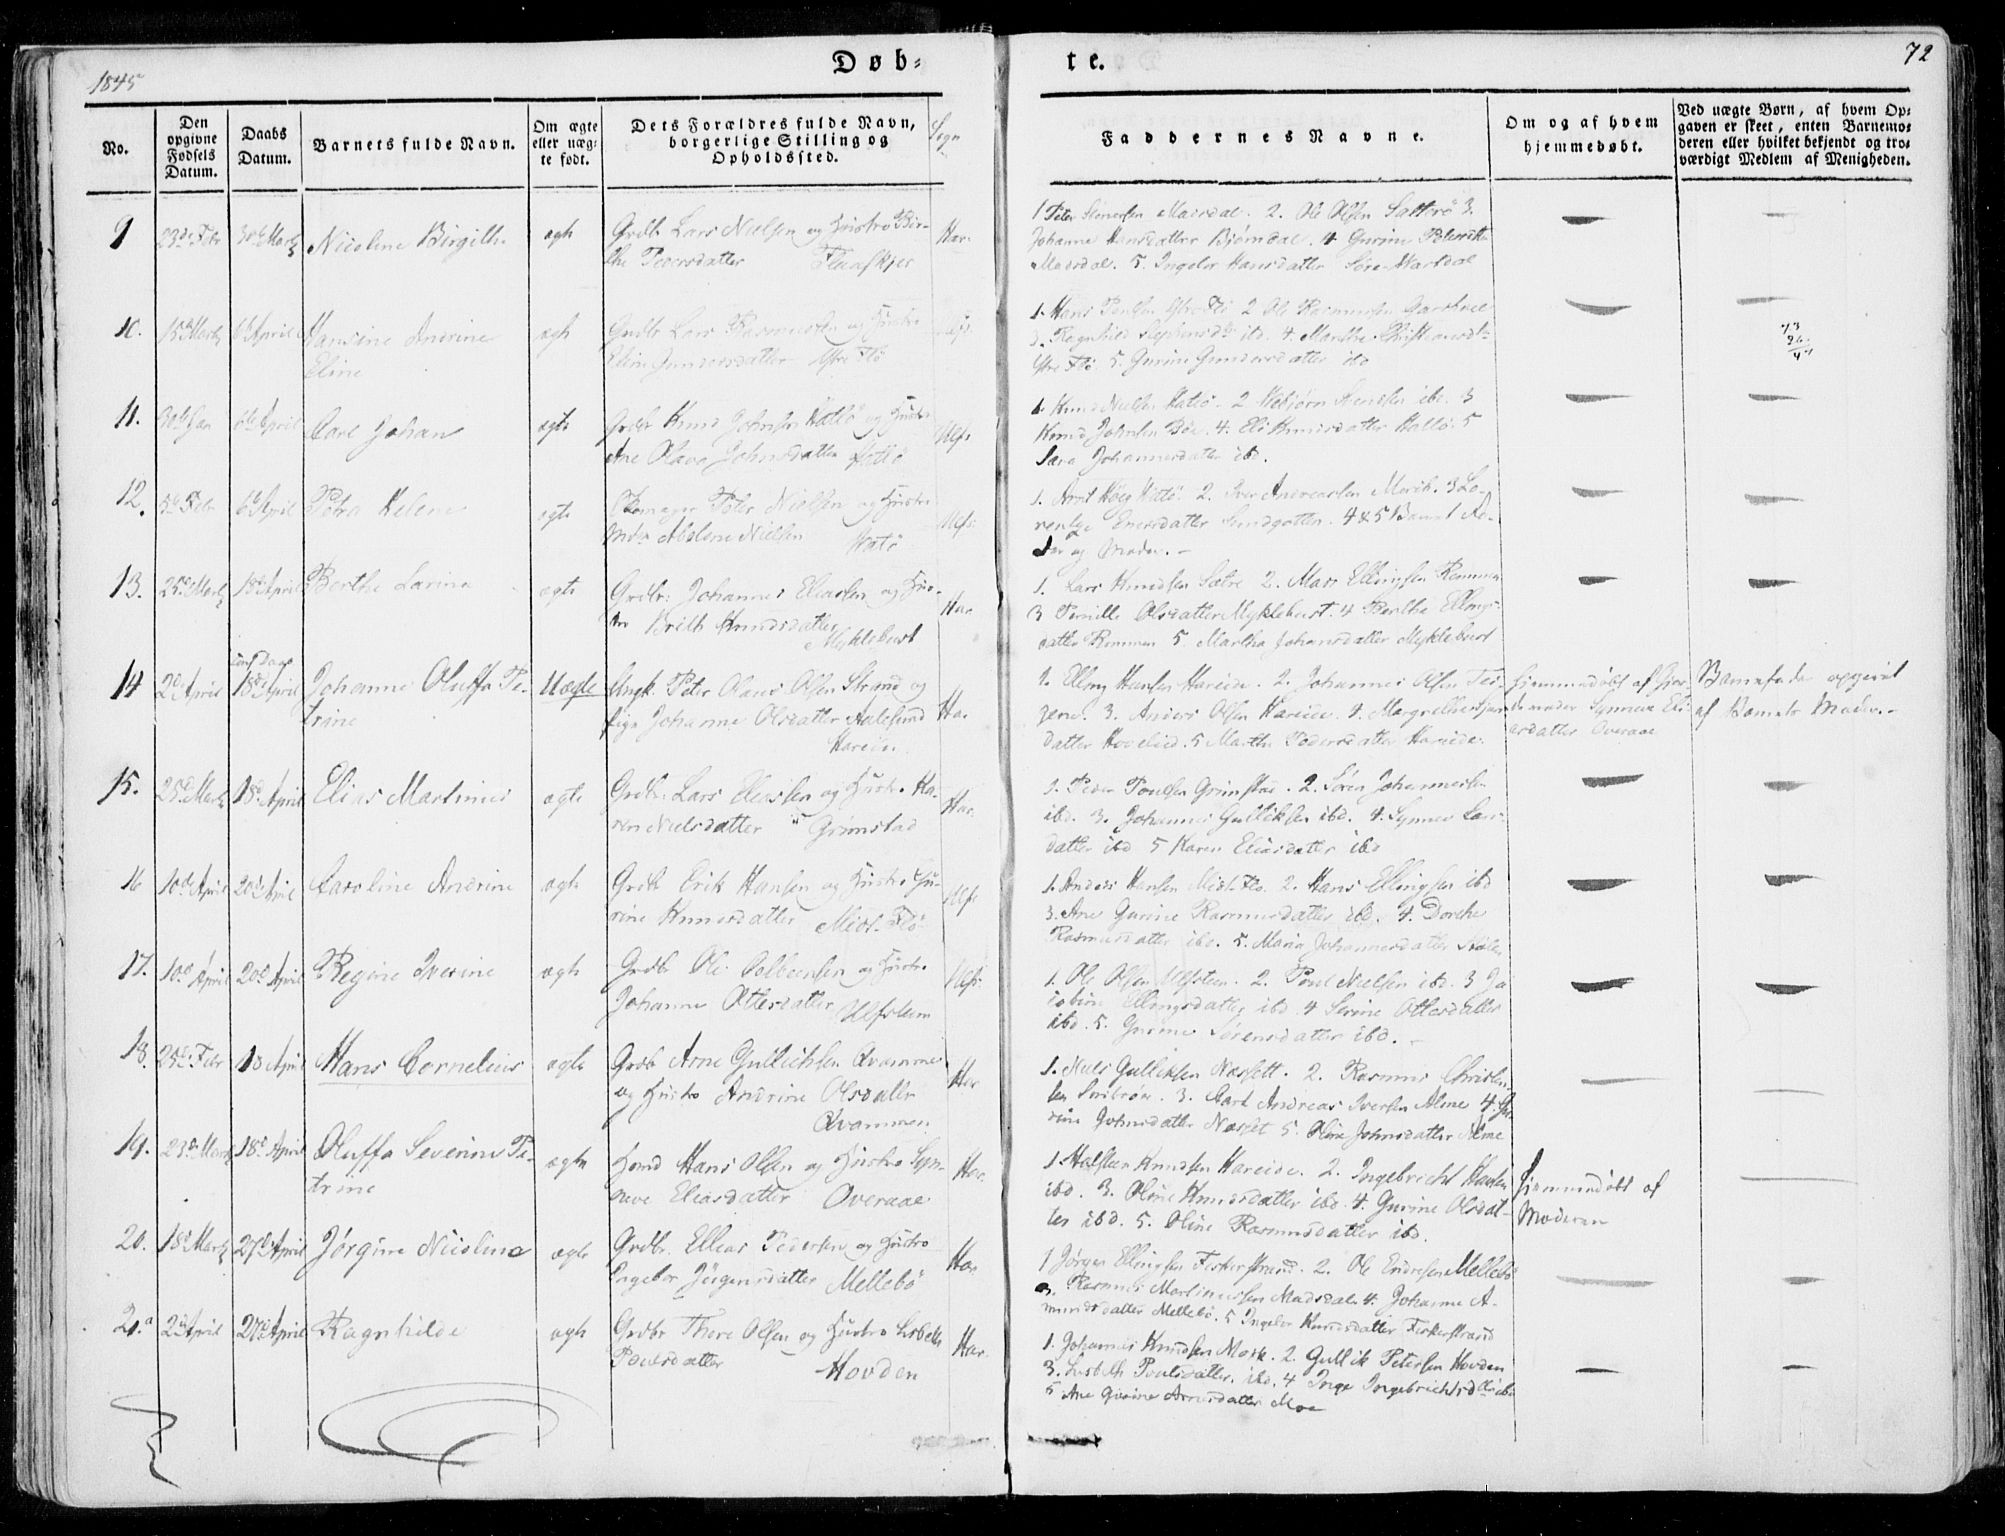 1845
Døb-
te.
72
No.
Den opgivne Fødsels Datum.
Daabs Datum.
Barnets fulde Navn.
Om ægte eller uægte født.
Dets Forældres fulde Navn, borgerlige Stilling og Opholdssted.
Sogn
Faddernes Navne.
Om og af hvem hjemmedøbt.
Ved uægte Børn, af hvem Opgaven er skeet, enten Barnemoderen eller hvilket bekjendt og troværdigt Medlem af Menigheden.
9 23de Febr 30te Martz Nicoline Birgithe ægte Grdbr Lars Nielsen og Hustro Bir-
the Pedersdatter Flaaskjer Har.
1 Peter Steinersen Marsdal. 2. Ole Olsen Satterø 3.
Johanne Hansdatter Bjørndal. 4 Gurine Peters
Marsdal. 5. Ingebor Hansdatter Søre-Hartdal
10. 15d Martz 6te April Hansine Andrine
Eline ægte Grdbr Lars Rasmussen og Hustro
Eline Gundersdatter Ytre Flø Ulfs.
1. Hans Ytre Flø 2 Ole Rasmussen
3. Ragnhild ibd. 4. Marthe Christiansdtr
Ytre Flø 5. Gurine Gundersdatter ibd
11. 30te Jan 6te April Carl Johan ægte Grdbr Knud Johnsen Hatlø og Hustro
Ane Olava Johnsdatter Hatlø Ulfs
1. Knud Nielsen Hatlø. 2 Vebjørn Steensen ibd. 3
Knud Johnsen Bøe. 4. Eli Knudsdatter Hatlø. 5
Lara Johannesdatter ibd.
12. 5te Febr 6te April Petra Helene ægte Peter Nielsen og Hustro
Abelone Nielsen Hatlø Ulfs.
1. Hatlø. 2. Iver Andreassen 3 Lo-
4 & 5 Barnets Fa-
der og Moder. -
13. 25d Martz 18d April Berthe Larine ægte Grdbr: Johannes Eliassen og Hus-
tro Brith Knudsdatter Myklebust Har
1. Lars Knudsen Sætre 2. Mats Ellingsen Remmen
3 Pernille Olsdatter Myklebust. 4 Berthe Ellings-
datter Remmen 5. Martha Johansdatter Myklebust
14 2d April 18d April Johanne Oluffa Pe-
trine Uægte Ungk. Peter Olaus Olsen Strand og
Pige Johanne Olsdatter Aalesund
Hareide Har
1. Elling Hansen Hareide. 2. Johannes Olsen
3. Anders Olsen Hareide. 4.
datter 5 Marthe Pedersdatter Hareide.
Hjemmedøbt af Gjor-
demoder Synneve Eli-
asdatter Overaae
Barnefader opgivet
af Barnets Moder.-
15. 25d Martz 18d April Elias Martinus ægte Grdbr. Lars Eliassen og Hustro Ka-
ren Nielsdatter Grimstad Har.
1. Peder Poulsen Grimstad. 2. Søren Johannessen
ibd. 3. Johannes Gulliksen ibd. 4. Synnev Lars-
datter ibd 5 Karen Eliasdatter ibd
16 10d April 20d April Caroline Andrine ægte Grdbr Erik Hansen og Hustro Gu-
rine Knudsdatter Midt. Flø Ulfs
1. Anders Hansen Midt. Flø. 2. Hans Ellingsen ibd
3. Ane Gurine Rasmusdatter ibd. 4. Dorthe
Rasmusdatter ibd. 5. Maria Johannesdatter
17. 10d April 20d April Regine Iverine ægte Grdbr Ole og Hustro
Johanne Ottersdatter Ulfsteen Ulfs.
1. Ole Olsen Ulfsteen. 2. Poul Nielsen ibd. 3 Ja
cobine Ellingsdatter ibd. 4 Serine Ottersdatter
ibd. 5. Gurine Sørensdatter ibd. -
18. 25de Febr 18 April Hans Cornelius ægte Grdbr Arne Gullichsen Qvamme
og Hustro Andrine Olsdatter
Qvammen Har
1. Niels Gulliksen Næssett. 2. Rasmus Christen-
sen 3. Carl Andreas Iversen Alme 4. Gu-
rine Johnsdatter Næsset 5. Oline Johnsdatter Alme
19. 23d Martz 18d April Oluffa Severine Pe-
trine ægte Hmd Hans Olsen og Hustro Syn-
neve Eliasdatter Overaae Har.
1. Halsteen Knudsen Hareide. 2. Ingebricht Hansen
ibd. 3. Oline Knudsdatter ibd. 4. Gurine Olsdat-
ter ibd. 5. Oline Rasmusdatter ibd.
Hjemmedøbt af
Moderen
20. 18d Martz 27d April Jørgine Nicoline ægte Grdbr. Elias Pedersen og Hustro
Ingebor Jørgensdatter Mellebø Har
1 Jørgen Ellingsen Fiskerstrand. 2. Ole Endresen Mellebø
3. Rasmus Martinussen Madsdal. 4. Johanne A-
mundsdatter Mellebø. 5 Ingebor Knudsdatter Fiskerstrand
21. 2d April 27d April Ragnhilde ægte Grdbr Thore Olsen og Hustro Lisbeth
Poulsdatter Hovden Har.
1. Johannes Knudsen Mork. 2. Gullik Petersen Hovden
3. Lisbeth Poulsdatter. ibd. 4 Inge Ingebrichtsdtr ibd
5 Ane Gurine Arnesdatter Moe